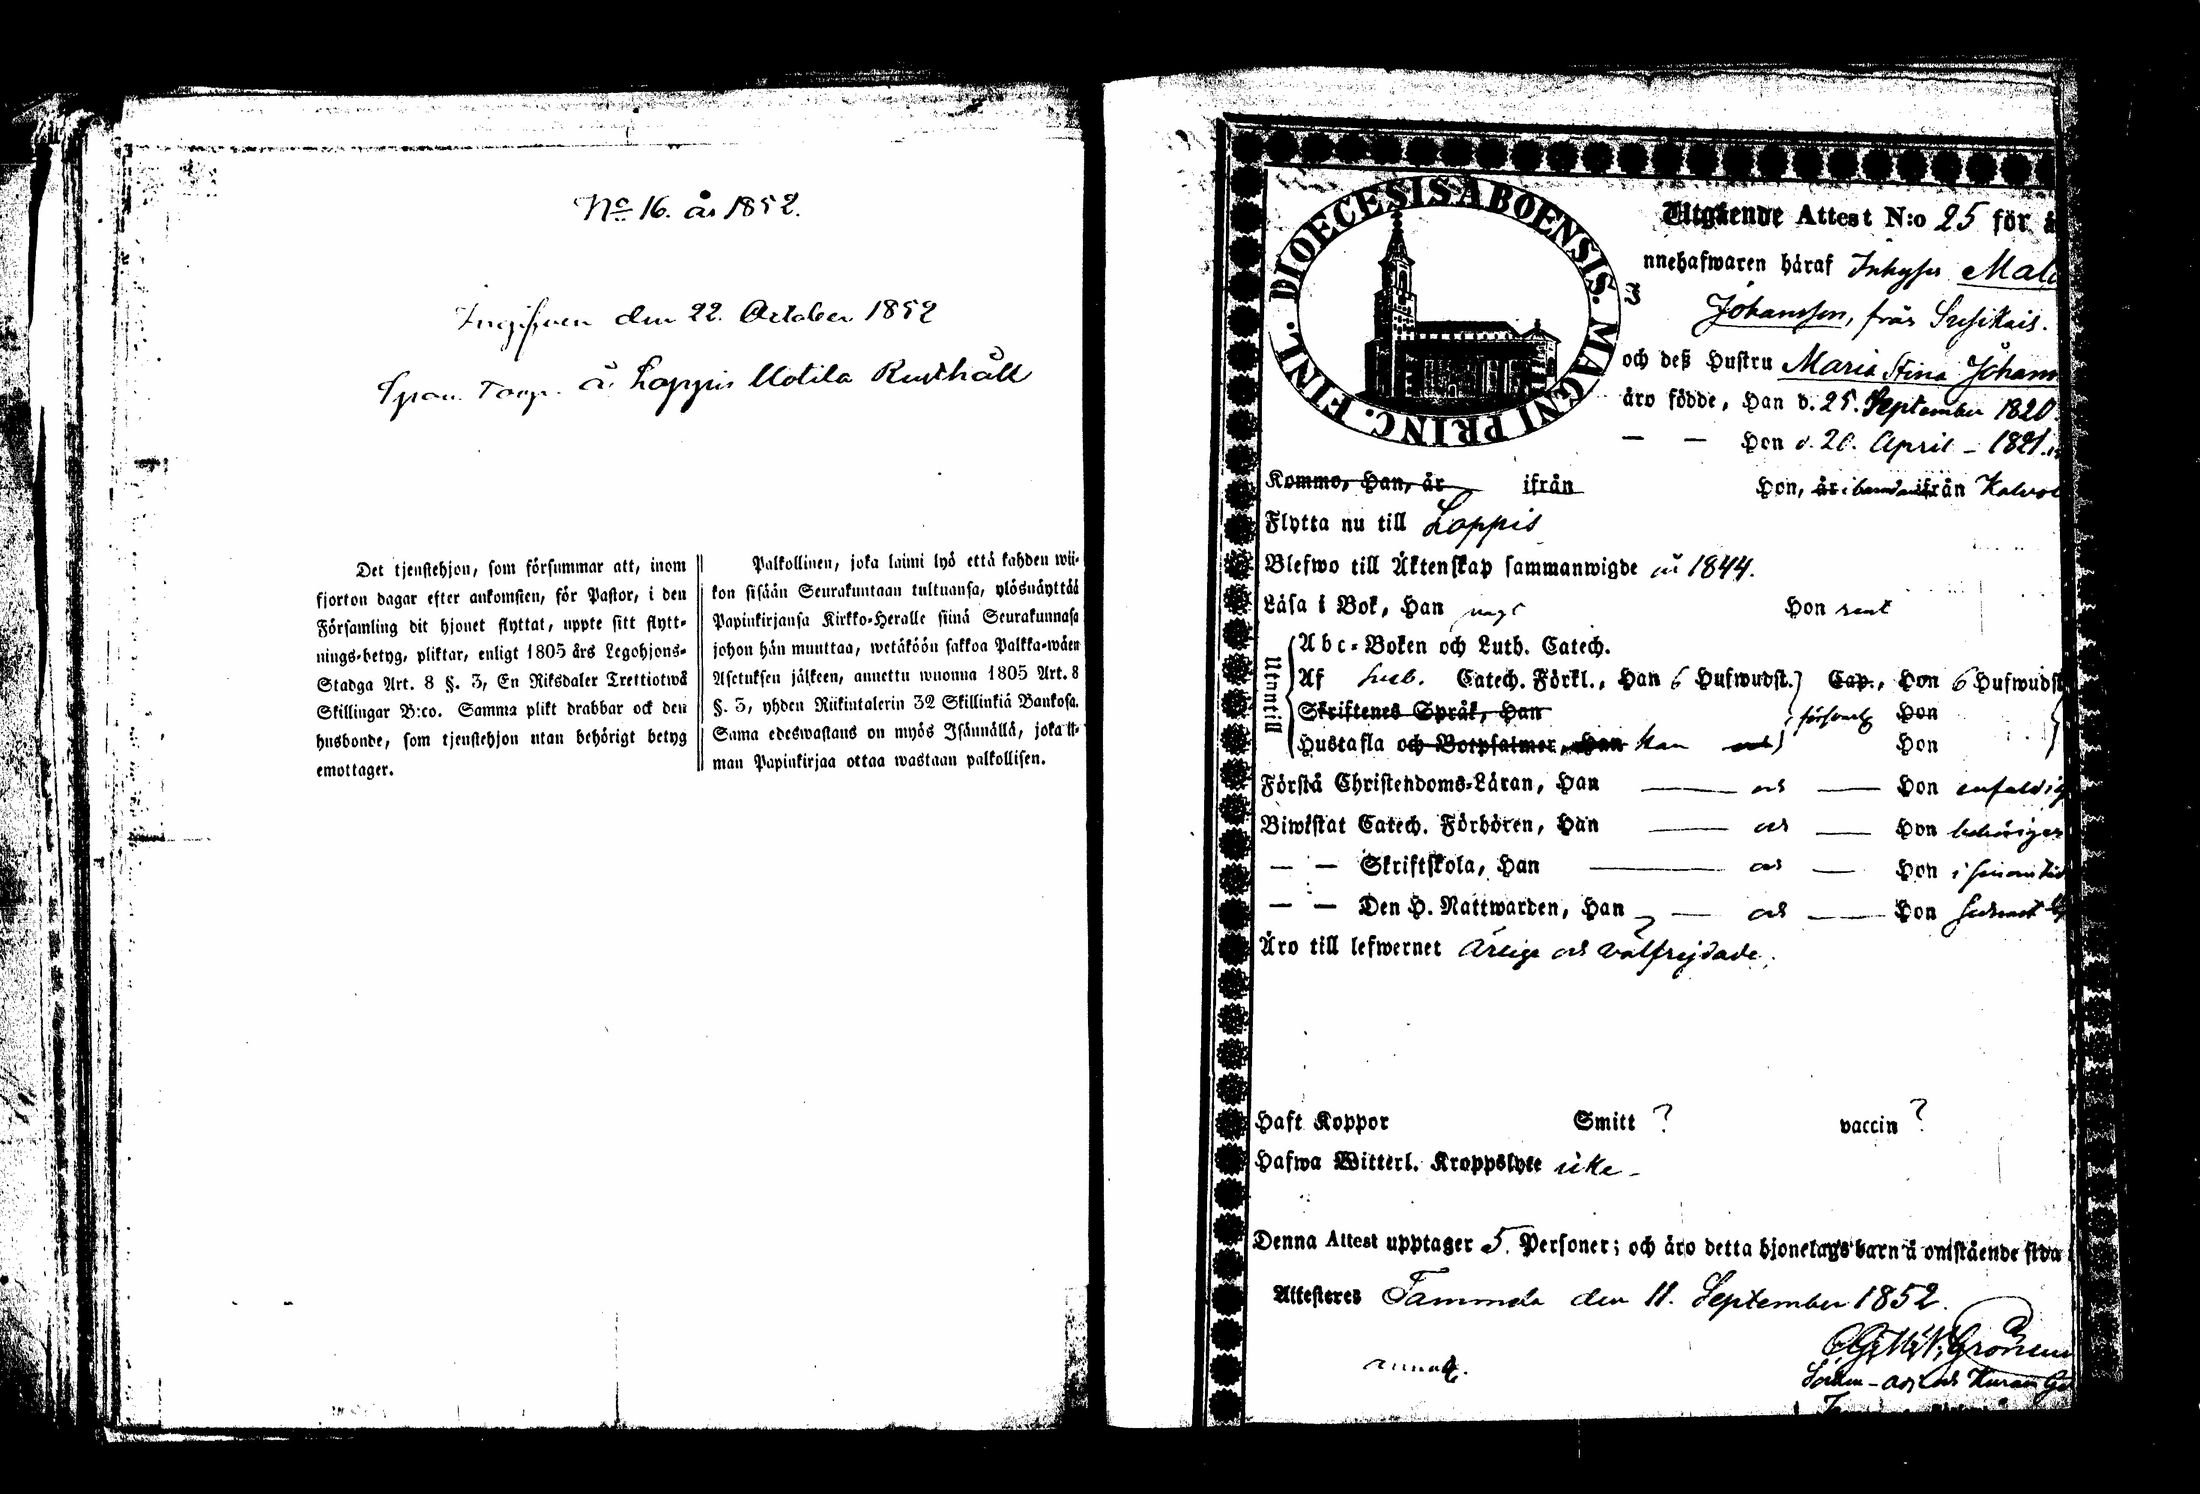 No 16. år 1852.
Ingifven den 22. October 1852
Torp. å Loppis Uotila Rusthåll
Det tjenstehjon, som försummar att, inom
fjorton dagar efter ankomsten, för Pastor, i den
Församling dit hjonet flyttat, uppte sitt flytt-
nings-betyg, pliktar, enligt 1805 års Legohjons-
Stadga Art. 8 §. 3, En Riksdaler Trettiotwå
Skillingar B:co. Samma plikt drabbar ock den
husbonde, som tjenstehjon utan behörigt betyg
emottager.
Palkollinen, joka laimi lyö että kahden wii-
kon sisään Seurakuntaan tultuansa, ylösnäyttää
Papinkirjansa Kirkko-Heralle siinä Seurakunnasa
johon hän muuttaa, wetäköön sakkoa Palkka-wäen
Asetuksen jälkeen, annettu wuonna 1805 Art. 8
§. 3, yhden Riikintalerin 32 Skillinkiä Bankosa.
Sama edeswastaus on myös Isännällä, joka il-
man Papinkirjaa ottaa wastaan palkollisen.
DIOECESIS ABOENSIS. MAGNI PRINC. FINL.
Utgående Attest N:o 25 för å
Innehafwaren häraf Inhyses
Johansson, från Susikais.
och deß Hustru Maria Stina Johan
äro födde, Han d. 25. September 1820.
— — Hon d. 20. April – 1821.
Kommo, Han, är ifrån Hon, är ifrån
Flytta nu till Loppis
Blefwo till Äktenskap sammanwigde år 1844.
Läsa i Bok, Han Hon rent
Utantill
Abc-Boken och Luth. Catech.
Af Catech. Förkl., Han 6 Hufwudst. Cap., Hon 6 Hufwudst
Skriftenes Språk, Han Hon
Hustafla och Botpsalmer, Han kan och Hon
Förstå Christendoms-Läran, Han — och — Hon enfaldig
Biwistat Catech. Förhören, Han — och — Hon behörigen
— — Skriftskola, Han — och — Hon i sinom tid
— — Den H. Nattwarden, Han — och — Hon senast
Äro till lefwernet Ärlige och välfrejdade.
Haft Koppor Smitt ? vaccin ?
Hafwa Witterl. Kroppslyte icke –
Denna Attest upptager 5. Personer; och äro detta hjonelags barn å omstående sida
Attesteres Tammela den 11. September 1852.